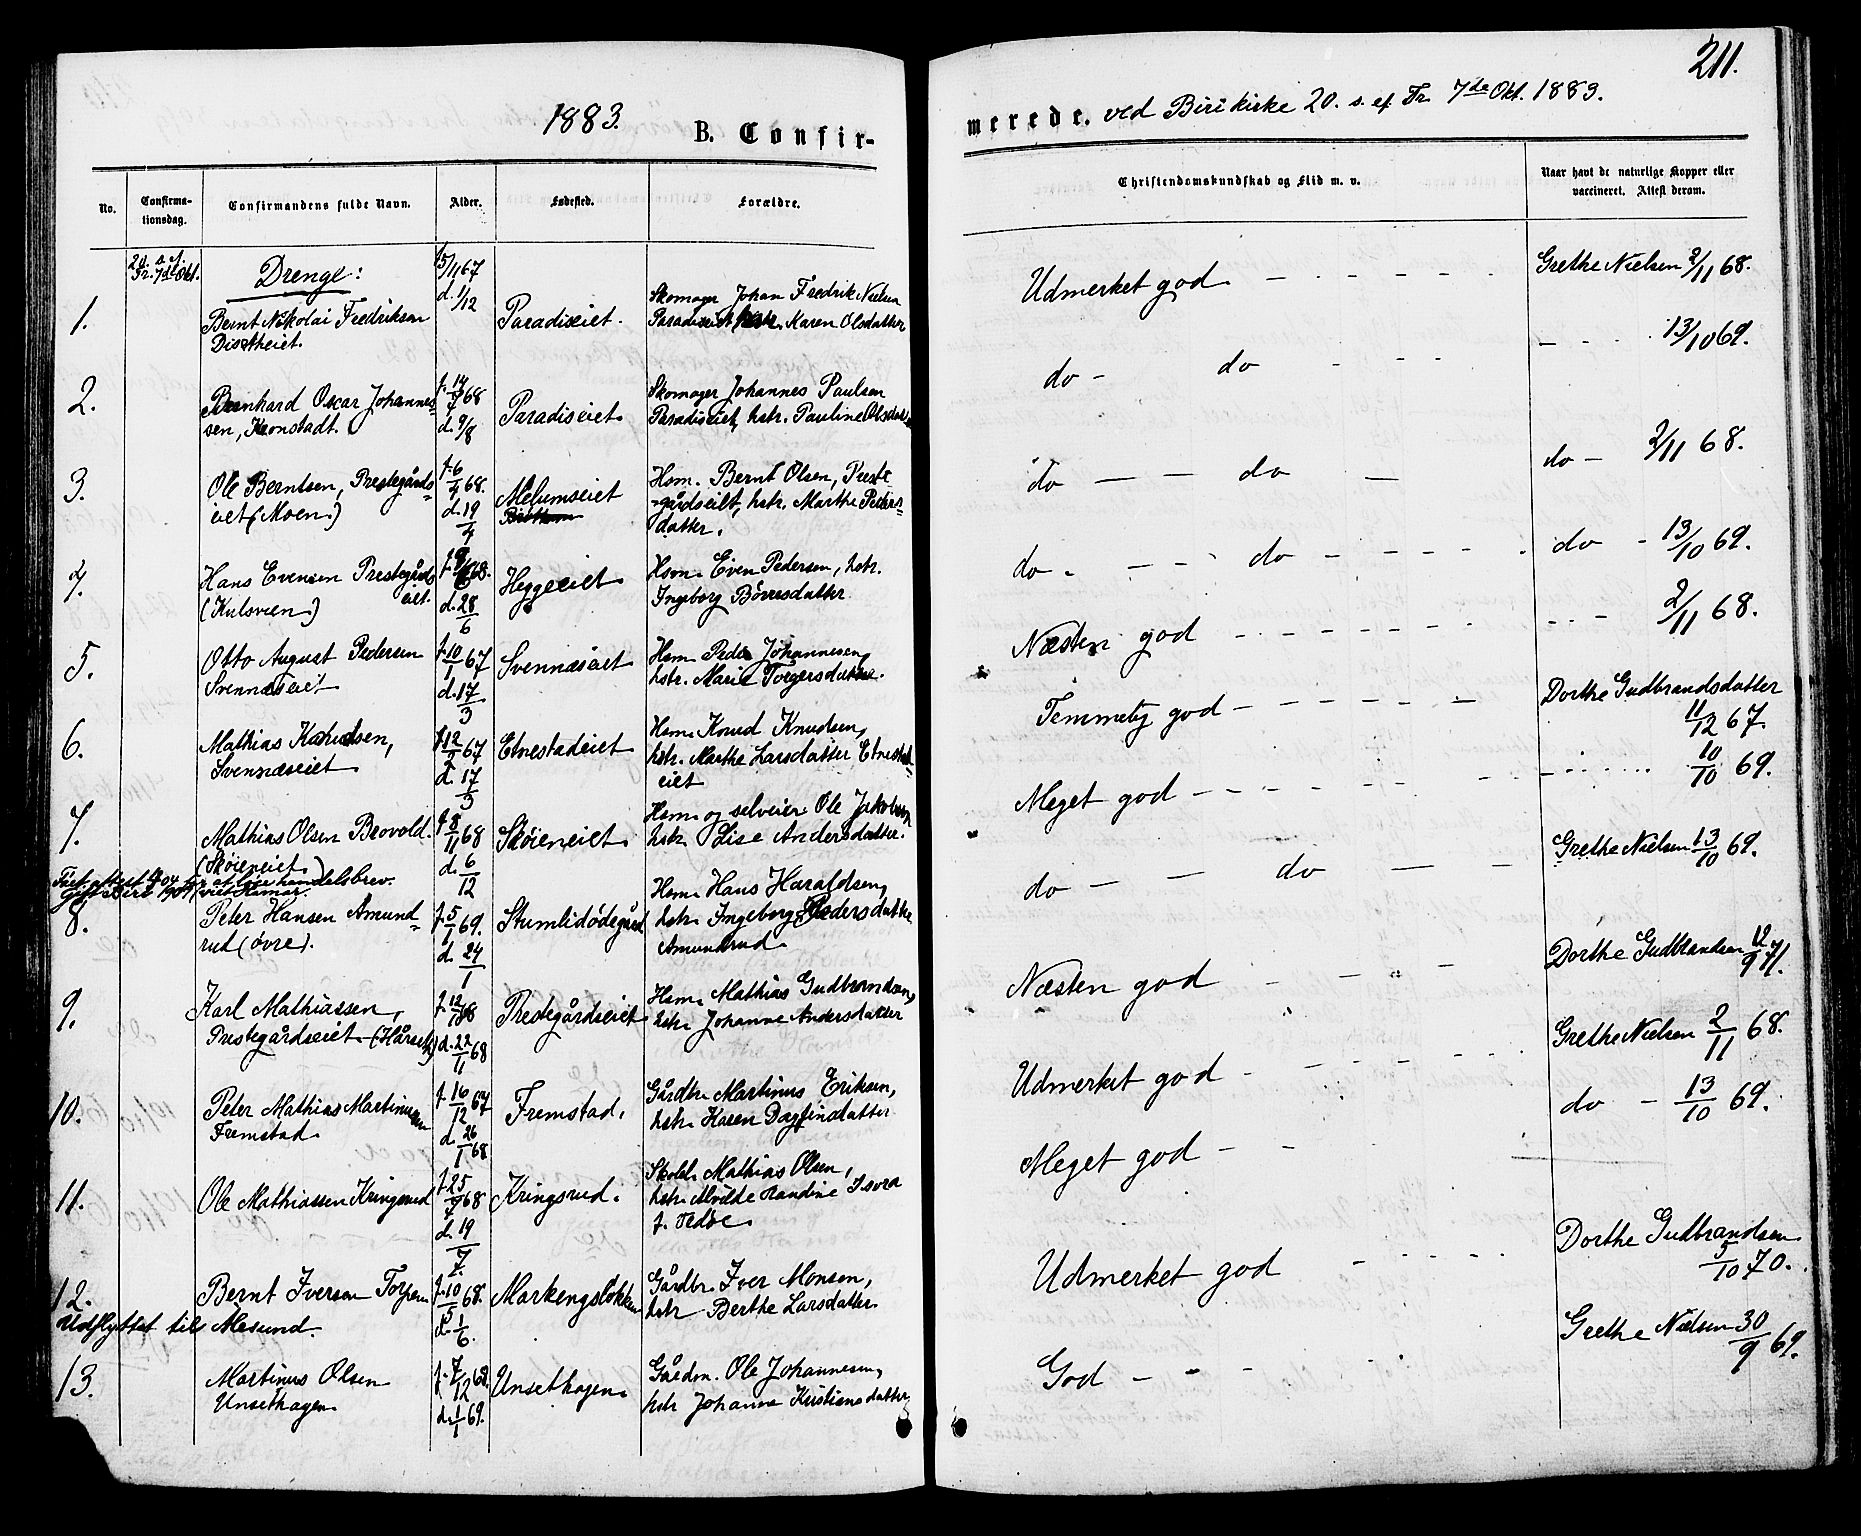 211.
1883.
B. Confir-
merede. ved Biri kirke 20. s. ef. Tr. 7de Okt. 1883.
No.
Confirma-
tionsdag.
Confirmandens fulde Navn.
Alder.
Fødested.
Forældre.
Christendomskundskab og Flid m. v.
Naar havt de naturlige Kopper eller
vaccineret. Attest derom.
20. s. ef.
Tr. 7de Okt.
Drenge:
1.
Bernt Nikolai Fredriksen
Distheiet.
15/11 67
d. 1/12
Paradiseiet.
Skomager Johan Fredrik Nielsen
Paradiseiet hstr. Karen Olsdatter
Udmerket god
Grethe Nielsen 2/11 68.
2.
Bernhard Oscar Johannes-
sen, Kronstadt.
f. 14/7 68
d. 9/8
Paradiseiet.
Skomager Johannes Paulsen
Paradiseiet, hstr. Pauline Olsdatter
do - do
13/10 69.
3.
Ole Berntsen, Prestegårds-
eiet (Moen.)
f. 6/4 68.
d. 19/4
Melumseiet
Hsm. Bernt Olsen, Preste-
gårdseiet, hstr. Marthe Peders-
datter.
do - - do -
do - 2/11 68.
4.
Hans Evensen Prestegårds
eiet.
(Kulsveen.)
68.
d. 28/6
Heggeeiet
Hsm. Even Pedersen, hstr.
Ingeborg Børresdatter
do - - do
do - 13/10 69.
5.
Otto August Pedersen
Svennæseiet
f. 10/1 67
d. 17/3
Svennæseiet
Hsm. Peder Johannesen,
hstr. Marie Torgersdatter.
Næsten god
2/11 68.
6.
Mathias Knudsen,
Svennæseiet
f. 12/2 67
d. 17/3
Etnestadeiet
Hsm. Knud Knudsen,
hstr. Marthe Larsdatter Etnestad-
eiet
Temmelig god
Dorthe Gudbrandsdatter
11/12 67.
7.
Mathias Olsen Brovold.
(Skøieneiet)
f. 8/11 68
d. 6/12
Skøieneiet.
Hsm. og selveier Ole Jakobsen
hstr. Lise Andersdatter.
Meget god
10/10 69.
handelsbrev.
8.
Peter Hansen Amund-
rud (øvre).
f. 5/1 69.
d. 24/1
Stumlidødegård
Hsm. Hans Haraldsen,
hstr. Ingeborg Pedersdatter
Amundrud
do - - do - -
Grethe Nielsen 13/10 69.
9.
Karl Mathiassen,
Prestegårdseiet - (Hårseth)
f. 12/10 68
d. 22/11 68
Prestegårdseiet
Hsm. Mathias Gudbrandsen,
hstr. Johanne Andersdatter
Næsten god
Dorthe Gudbrandsen 12/9 71.
10.
Peter Mathias Martinusen
Fremstad.
f. 16/12 67
d. 26/1 68
Fremstad.
Gårdbr. Martinus Eriksen,
hstr. Karen Dagfinsdatter
Udmerket god
Grethe Nielsen 2/11 68.
11.
Ole Mathiassen Kringsrud
f. 25/6 68
d. 19/7
Kringsrud.
Skolel. Mathias Olsen,
hstr. Alvilde Randine Isora
Meget god
do - 13/10 69.
12.
Bernt Iversen Torpen
f. 10/5 68.
d. 1/6.
Markengsløkken
Gårdbr. Iver Monsen,
hstr. Berthe Larsdatter.
Udmerket god
Dorthe Gudbrandsen
5/10 70.
Udflyttet til Ålesund.
13.
Martinus Olsen
Unsethagen
f. 7/12 68.
d. 1/1 69.
Unsethagen.
Gårdm. Ole Johannesen,
hstr. Johanne Kristiansdatter
God
Grethe Nielsen 30/9 69.